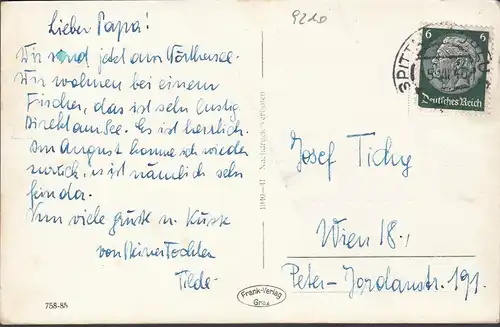 Lieber Papa!
Wir sind jetzt am Wörthersee.
Wir wohnen bei einem
Fischer, das ist sehr lustig.
Direkt am See. Es ist herrlich.
Im August komme ich wieder
zurück, es ist nämlich sehr
fein da.
Nun viele Grüße u. Küsse
von Deiner Tochter
Tilde
758-85
9210
1940-41 Nachdruck verboten
Frank-Verlag
Graz
6 6
Deutsches Reich
SPITT
Josef Tichy
Wien 18.
Peter-Jordanstr. 191.